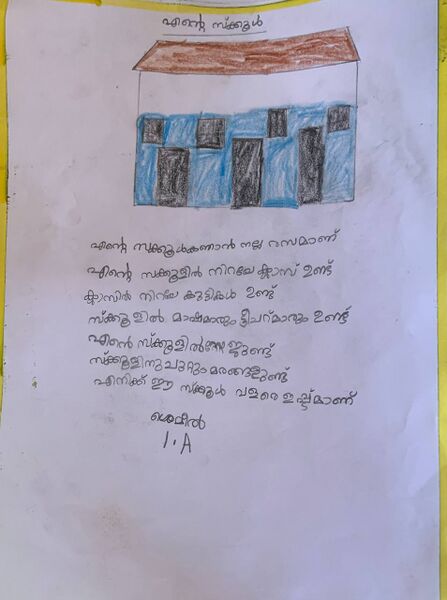 എന്റെ സ്ക്കൂൾ
എന്റെ സ്ക്കൂൾകണാൻ നല്ല രസമാണ്
എന്റെ സ്ക്കൂളിൽ നിറയേ ക്ലാസ് ഉണ്ട്
ക്ലാസിൽ നിറയേ കുട്ടികൾ ഉണ്ട്
സ്ക്കൂളിൽ മാഷമാരും ടീചറ്മാരും ഉണ്ട്
എന്റെ സ്ക്കൂളിൽ
സ്ക്കൂളിനുചുറ്റും മരങ്ങളുണ്ട്
എനിക്ക് ഈ സ്ക്കൂൾ വളരെ ഇഷ്ട്ടമാണ്
1.A